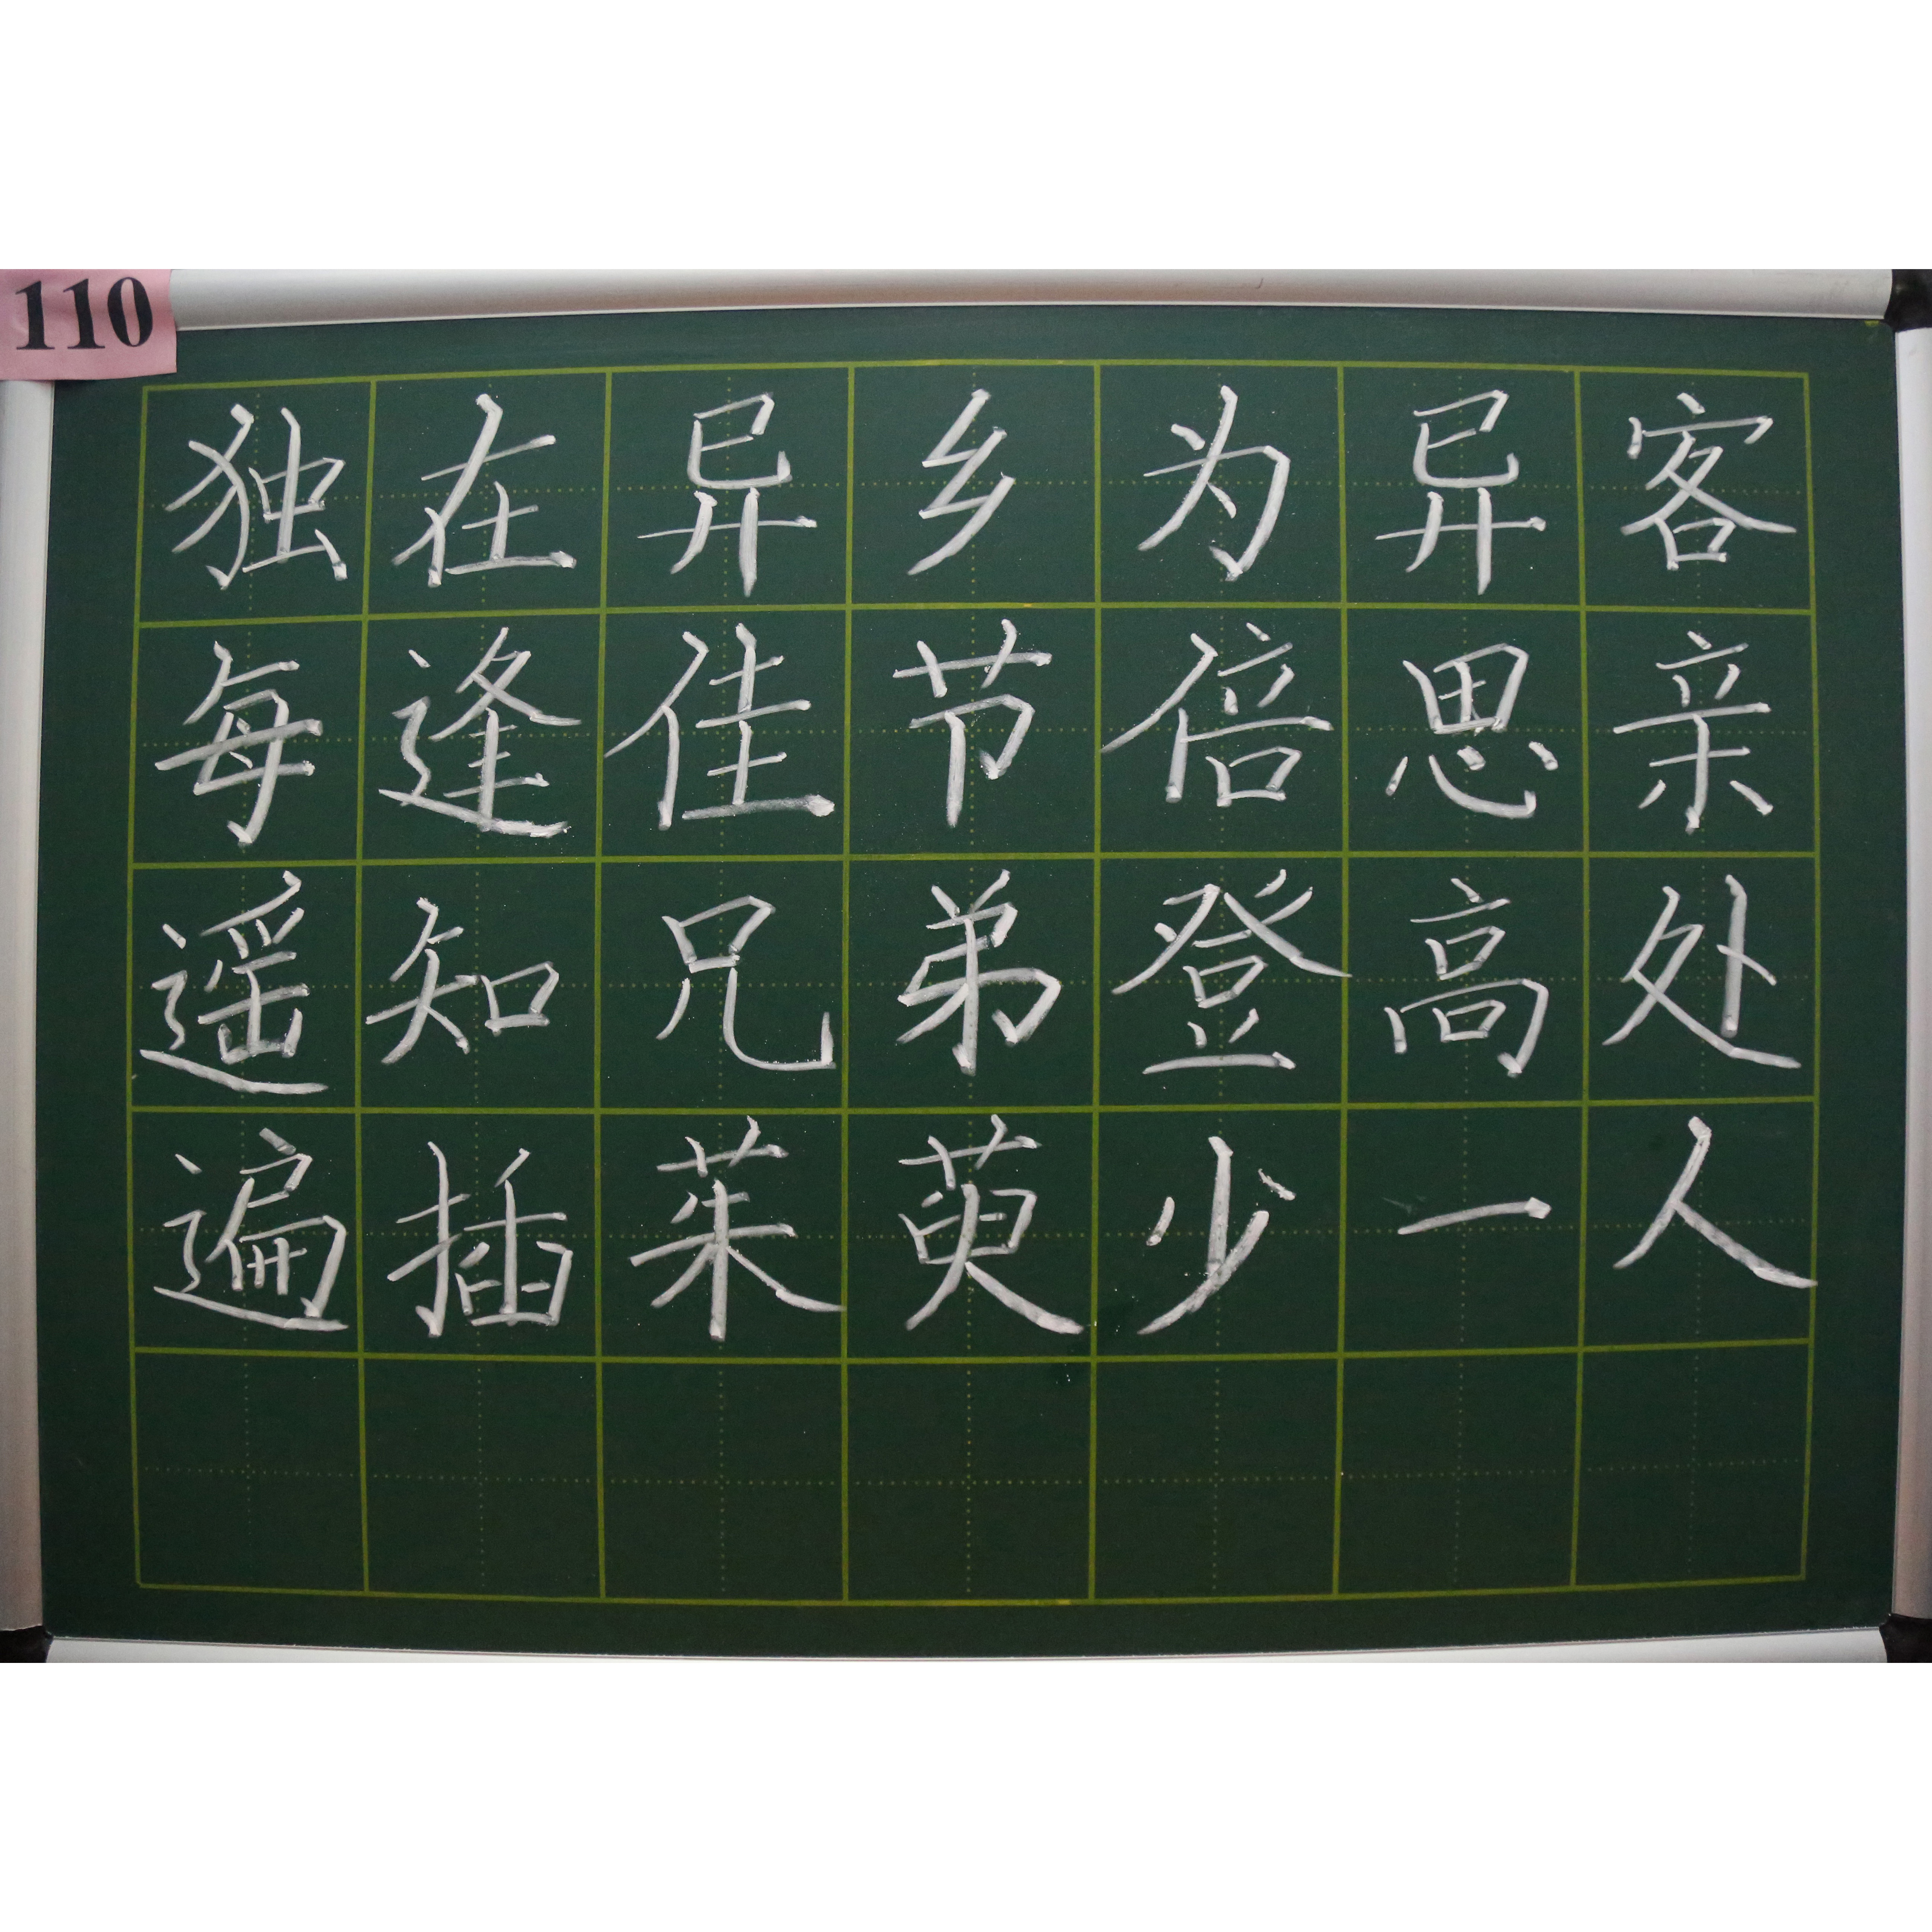 110
独在异乡为异客
每逢佳节倍思亲
遥知兄弟登高处
遍插茱萸少一人